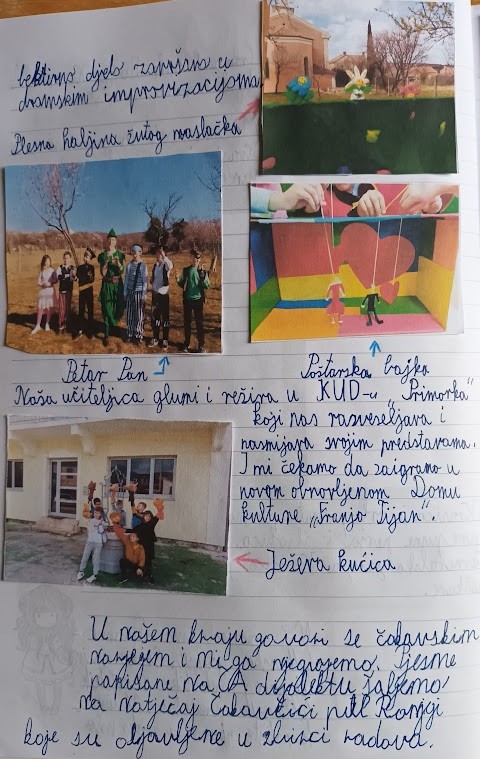 lektirno djelo završava u
dramskim improvizacijama
Plesna haljina žutog maslačka
Petar Pan
Poštarska bajka
Naša učiteljica glumi i režira u KUD-u „Primorka"
koji nas razveseljava i
nasmijava svojim predstavama.
I mi čekamo da zaigramo u
novom obnovljenom Domu
kulture „Franjo Tijan".
Ježeva kućica
U našem kraju govori se čakavskim
narječjem i mi ga njegujemo. Pjesme
napisane na CA dijalektu šaljemo
na Natječaj Čakavčići pul Ronjgi
koje su objavljene u zbirci radova.